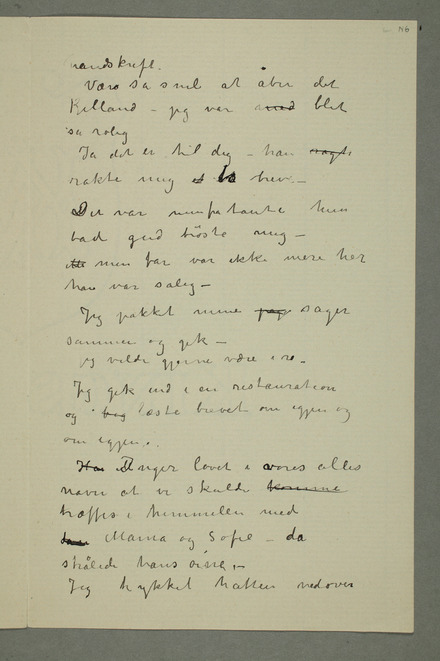 N6
handskrift.
Være så snil at åbn det
Kelland – jeg var blet
så rolig
Ja det er til dig – han sagt
rakte mig et brev. –
Det var min fa tante hun
bad gud trøste mig –
men far var ikke mere her
han var salig –
Jeg pakket mine sager
sammen og gik –
jeg vilde gjerne være i ro.
Jeg gik ind i en restauration
og læste brevet om igjen og
om igjen..
Inger lovet i vores alles
navn at vi skulde komme
træffes i himmellen med
Mama og Sofie – da
strålede hans øine, –
Jeg trykket hatten ned over